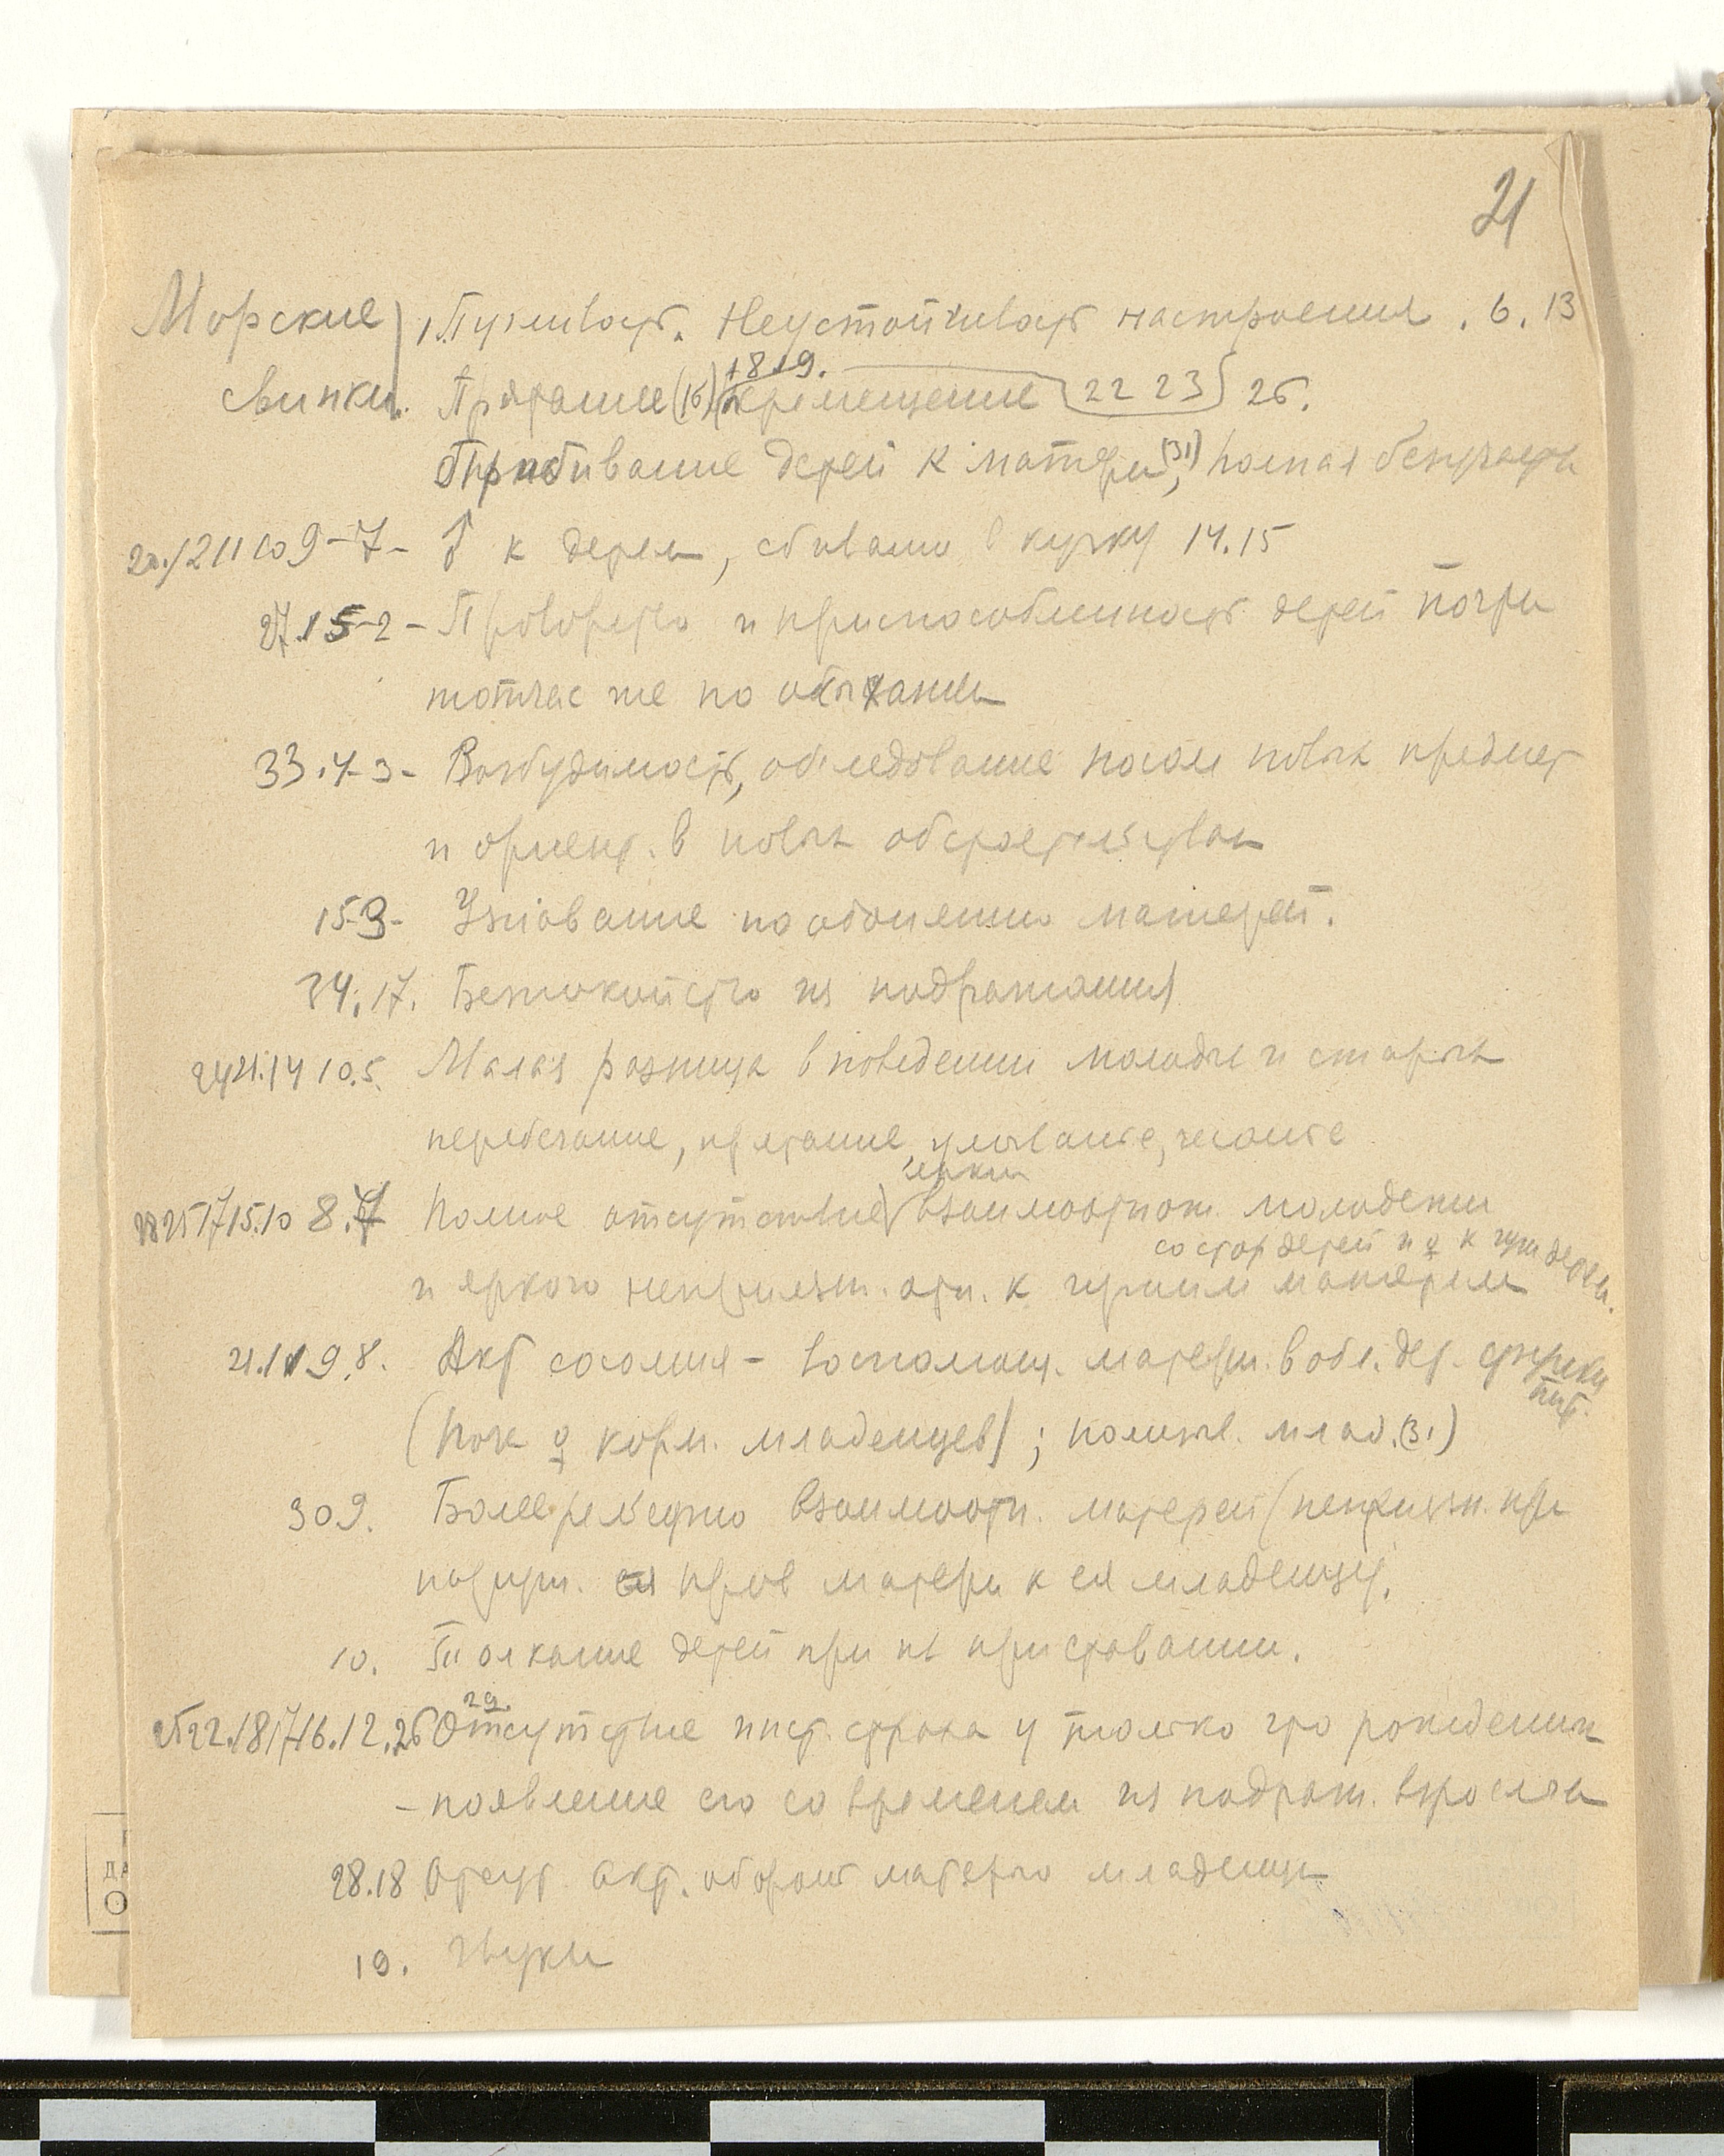 21
Морские 1. Пугливость. Неустойчивость настроения . 6. 13
18 19.
свинки. Прятание (16) перемещение 22 23 26.
Прибивание детей к матери (31), полная
к детям, сбивани в кучку 14.15
27.15-2- Проворство и приспособленность детей почти
тотчас же по
33.4-3- Возбудимость, обследование носом новых предмет
и ориент. в новых обстоятельствах
15-9- Узнавание по обонянию матерей.
34.17. Беспокойство из подражания
21.14 10.5. Малая разница в поведении молодых и старых
перебегание, прятание, умывание, чесание
8.7 Полное отсутствие взаимоотнош. молодежи
со стар детей и ♀ к чуж детям.
и яркого неприязн. отн. к чужим матерям
21.11 9.8. Акт сосания - матери. в обл. дет.
(пок ♀ корм. младенцев); млад. (31)
30 9. Более рельефно взаимоотн. матерей (неприязн. при
матери к ея младенцу.
10. Толкание детей при их приставании.
29.
22.18 17 16.12.26 Отсутствие инст. страха у только что рожденных
- появление его со временем из подраж. взрослым
28.18 Отсут. акт. оборон матерью младенцы
19. Звуки
ДА
О